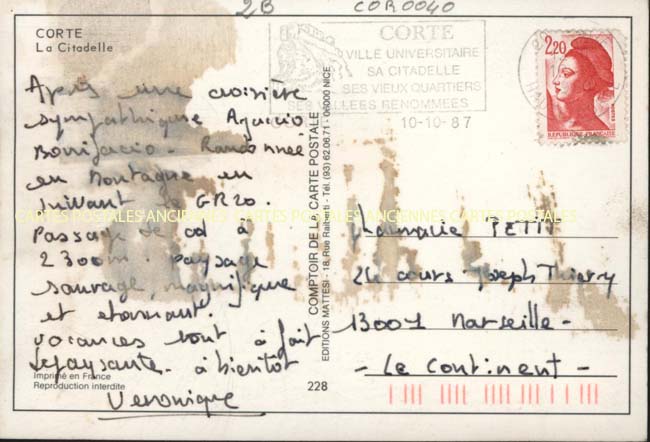 2B
COR0040
CORTE
La Citadelle
CORTE
VILLE UNIVERSITAIRE
SA CITADELLE
SES VIEUX QUARTIERS
SES VALLEES RENOMMEES
10-10-87
2,20
REPUBLIQUE FRANCAISE
Après une croisière
sympathique Ajaccio
Bonifacio - Randonnée
en Montagne en
suivant le GR20.
Passage de col à
2300m. paysage
sauvage, magnifique
et etonnant.
vacances tout à fait
depaysante - à bientôt
Veronique
CARTES POSTALES ANCIENNES CARTES POSTALES ANCIENNES CARTES POSTALES
COMPTOIR DE LA CARTE POSTALE
EDITIONS MATTESI - 18, Rue Raiberti - Tél. (93) 62.06.71 - 06000 NICE
Pharmacie PETIT
24 cours Joseph Thierry
13001 Marseille -
- Le Continent -
Imprimé en France
Reproduction interdite
228